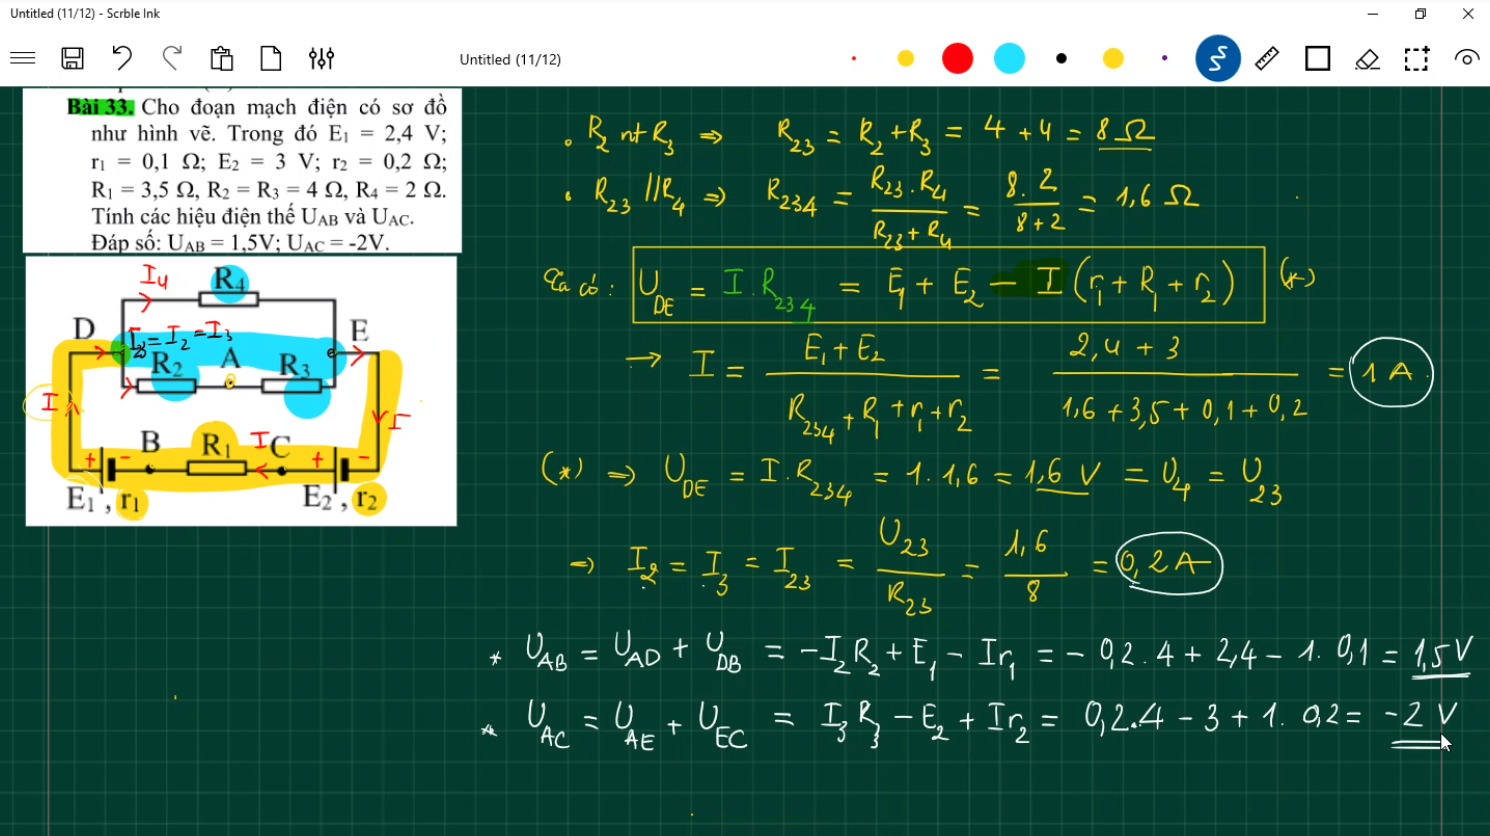 Untitled (11/12) - Scrble Ink
Untitled (11/12)
Bài 33. Cho đoạn mạch điện có sơ đồ
như hình vẽ. Trong đó E₁ = 2,4 V;
r₁ = 0,1 Ω; E₂ = 3 V; r₂ = 0,2 Ω;
R₁ = 3,5 Ω, R₂ = R₃ = 4 Ω, R₄ = 2 Ω.
Tính các hiệu điện thế U_AB và U_AC.
Đáp số: U_AB = 1,5V; U_AC = -2V.
I₄ R₄
D I₂₃ = I₂ = I₃ E
R₂ A R₃
I I
B R₁ I C
+ - + -
E₁, r₁ E₂, r₂
. R₂ nt R₃ ⇒ R₂₃ = R₂ + R₃ = 4 + 4 = 8 Ω
. R₂₃ // R₄ ⇒ R₂₃₄ = R₂₃.R₄ / (R₂₃ + R₄) = 8.2 / (8+2) = 1,6 Ω
Ta có: U_DE = I.R₂₃₄ = E₁ + E₂ - I(r₁ + R₁ + r₂) (*)
→ I = (E₁ + E₂) / (R₂₃₄ + R₁ + r₁ + r₂) = (2,4 + 3) / (1,6 + 3,5 + 0,1 + 0,2) = 1 A
(*) ⇒ U_DE = I.R₂₃₄ = 1.1,6 = 1,6 V = U₄ = U₂₃
⇒ I₂ = I₃ = I₂₃ = U₂₃ / R₂₃ = 1,6 / 8 = 0,2 A
* U_AB = U_AD + U_DB = -I₂R₂ + E₁ - Ir₁ = - 0,2.4 + 2,4 - 1.0,1 = 1,5 V
* U_AC = U_AE + U_EC = I₃R₃ - E₂ + Ir₂ = 0,2.4 - 3 + 1.0,2 = -2 V